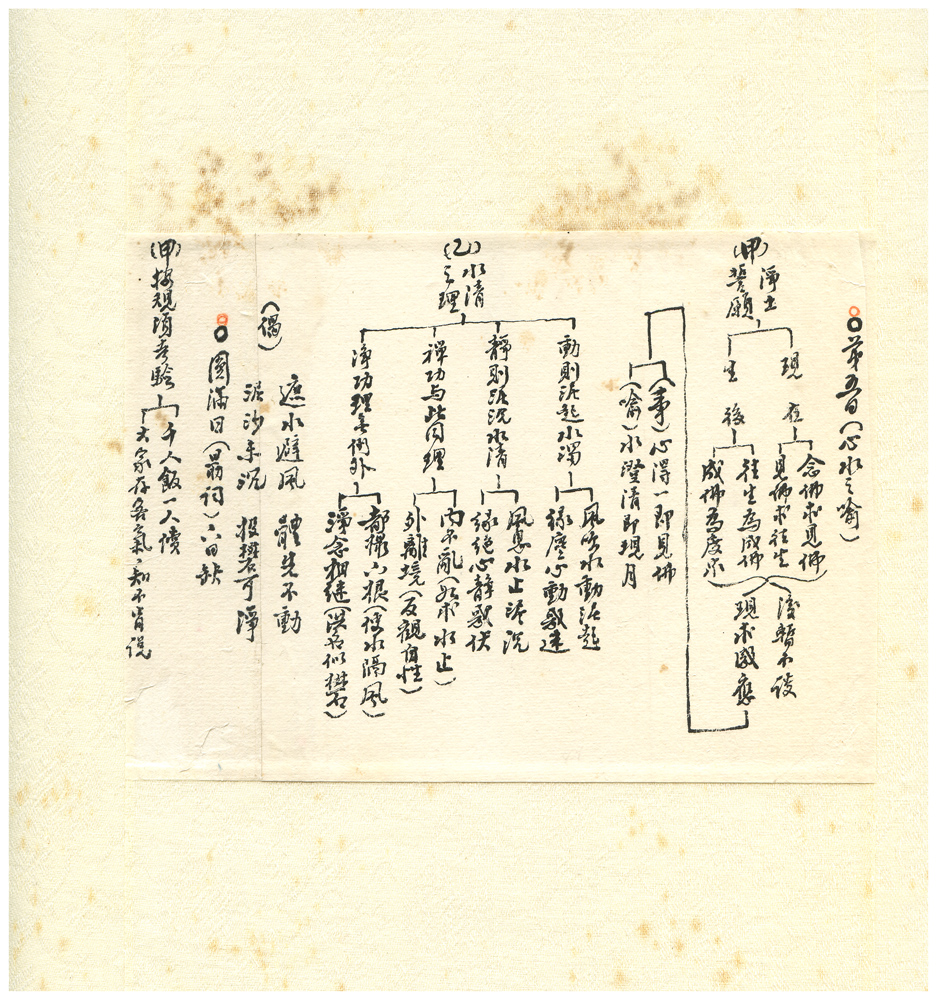 第五日（心水之喻）
（甲）淨土誓願
現在
念佛求見佛
見佛求往生
後
往生為成佛
成佛為度眾
後暫不談
現求感應
（事）心得一即見佛
（喻）水澄清即現月
（乙）水清之理
動則泥起水濁
風吹水動泥起
緣塵心動
靜則泥沉水清
風息水止泥沉
緣絕心靜惑伏
禪功与此同理
內不亂（如求水止）
外離境（反觀自性）
淨功理不例外
都攝六根（使水隔風）
淨念相繼（洪名似礬石）
（偈）
遮水避風　體先不動
泥沙未沉　投礬可淨
圓滿日（曇祠）六日缺
（甲）按規須考驗
千人飯一人償
大家存客氣知不肯說